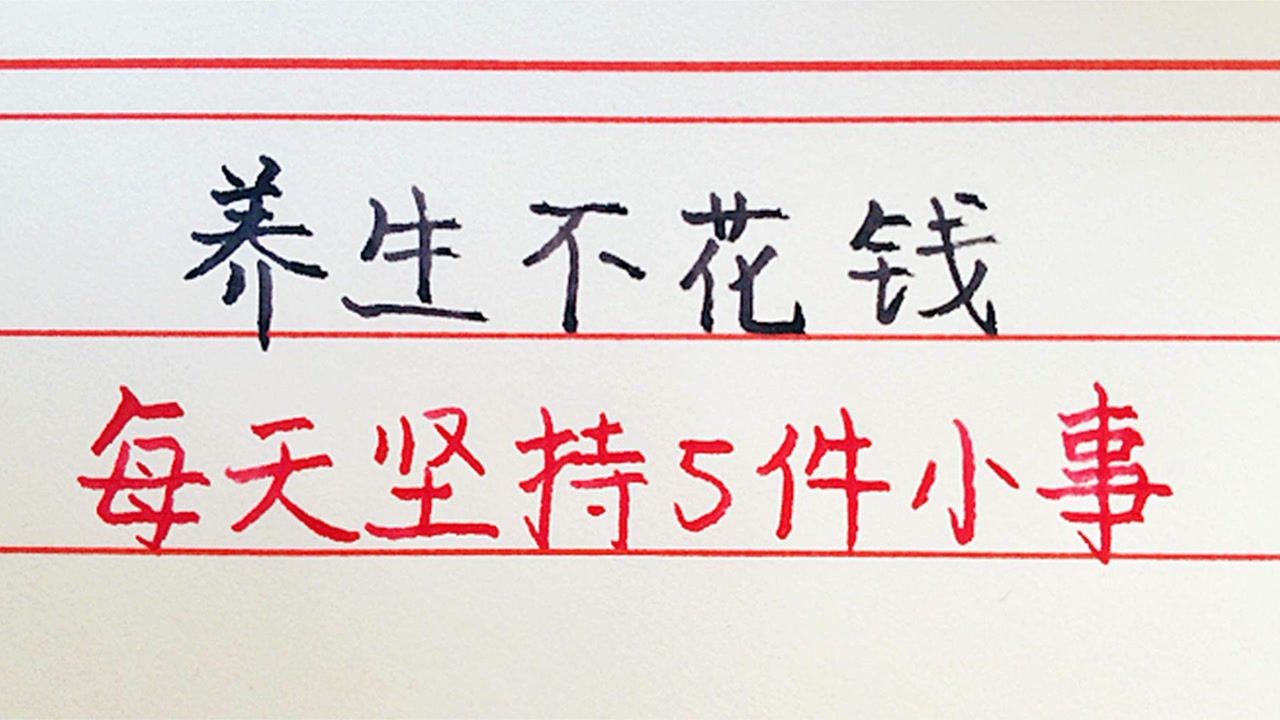 养生不花钱
每天坚持5件小事